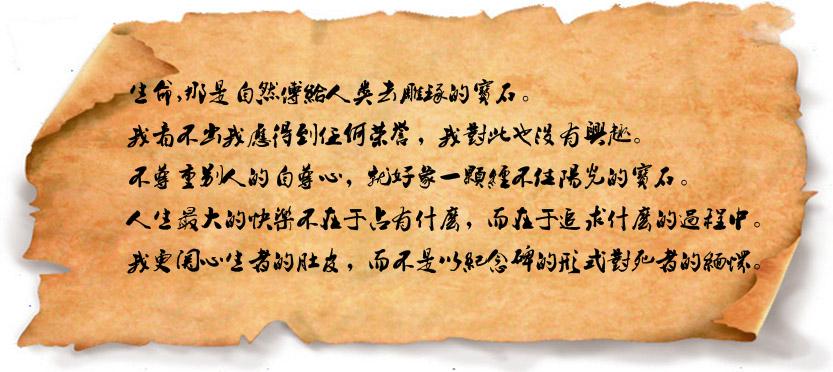 生命,那是自然傅給人類去雕琢的寶石。
我看不出我應得到任何榮譽，我對此也沒有興趣。
不尊重別人的自尊心，就好象一顆經不住陽光的寶石。
人生最大的快樂不在于占有什麽，而在于追求什麽的過程中。
我更關心生者的肚皮，而不是以紀念碑的形式對死者的緬懷。